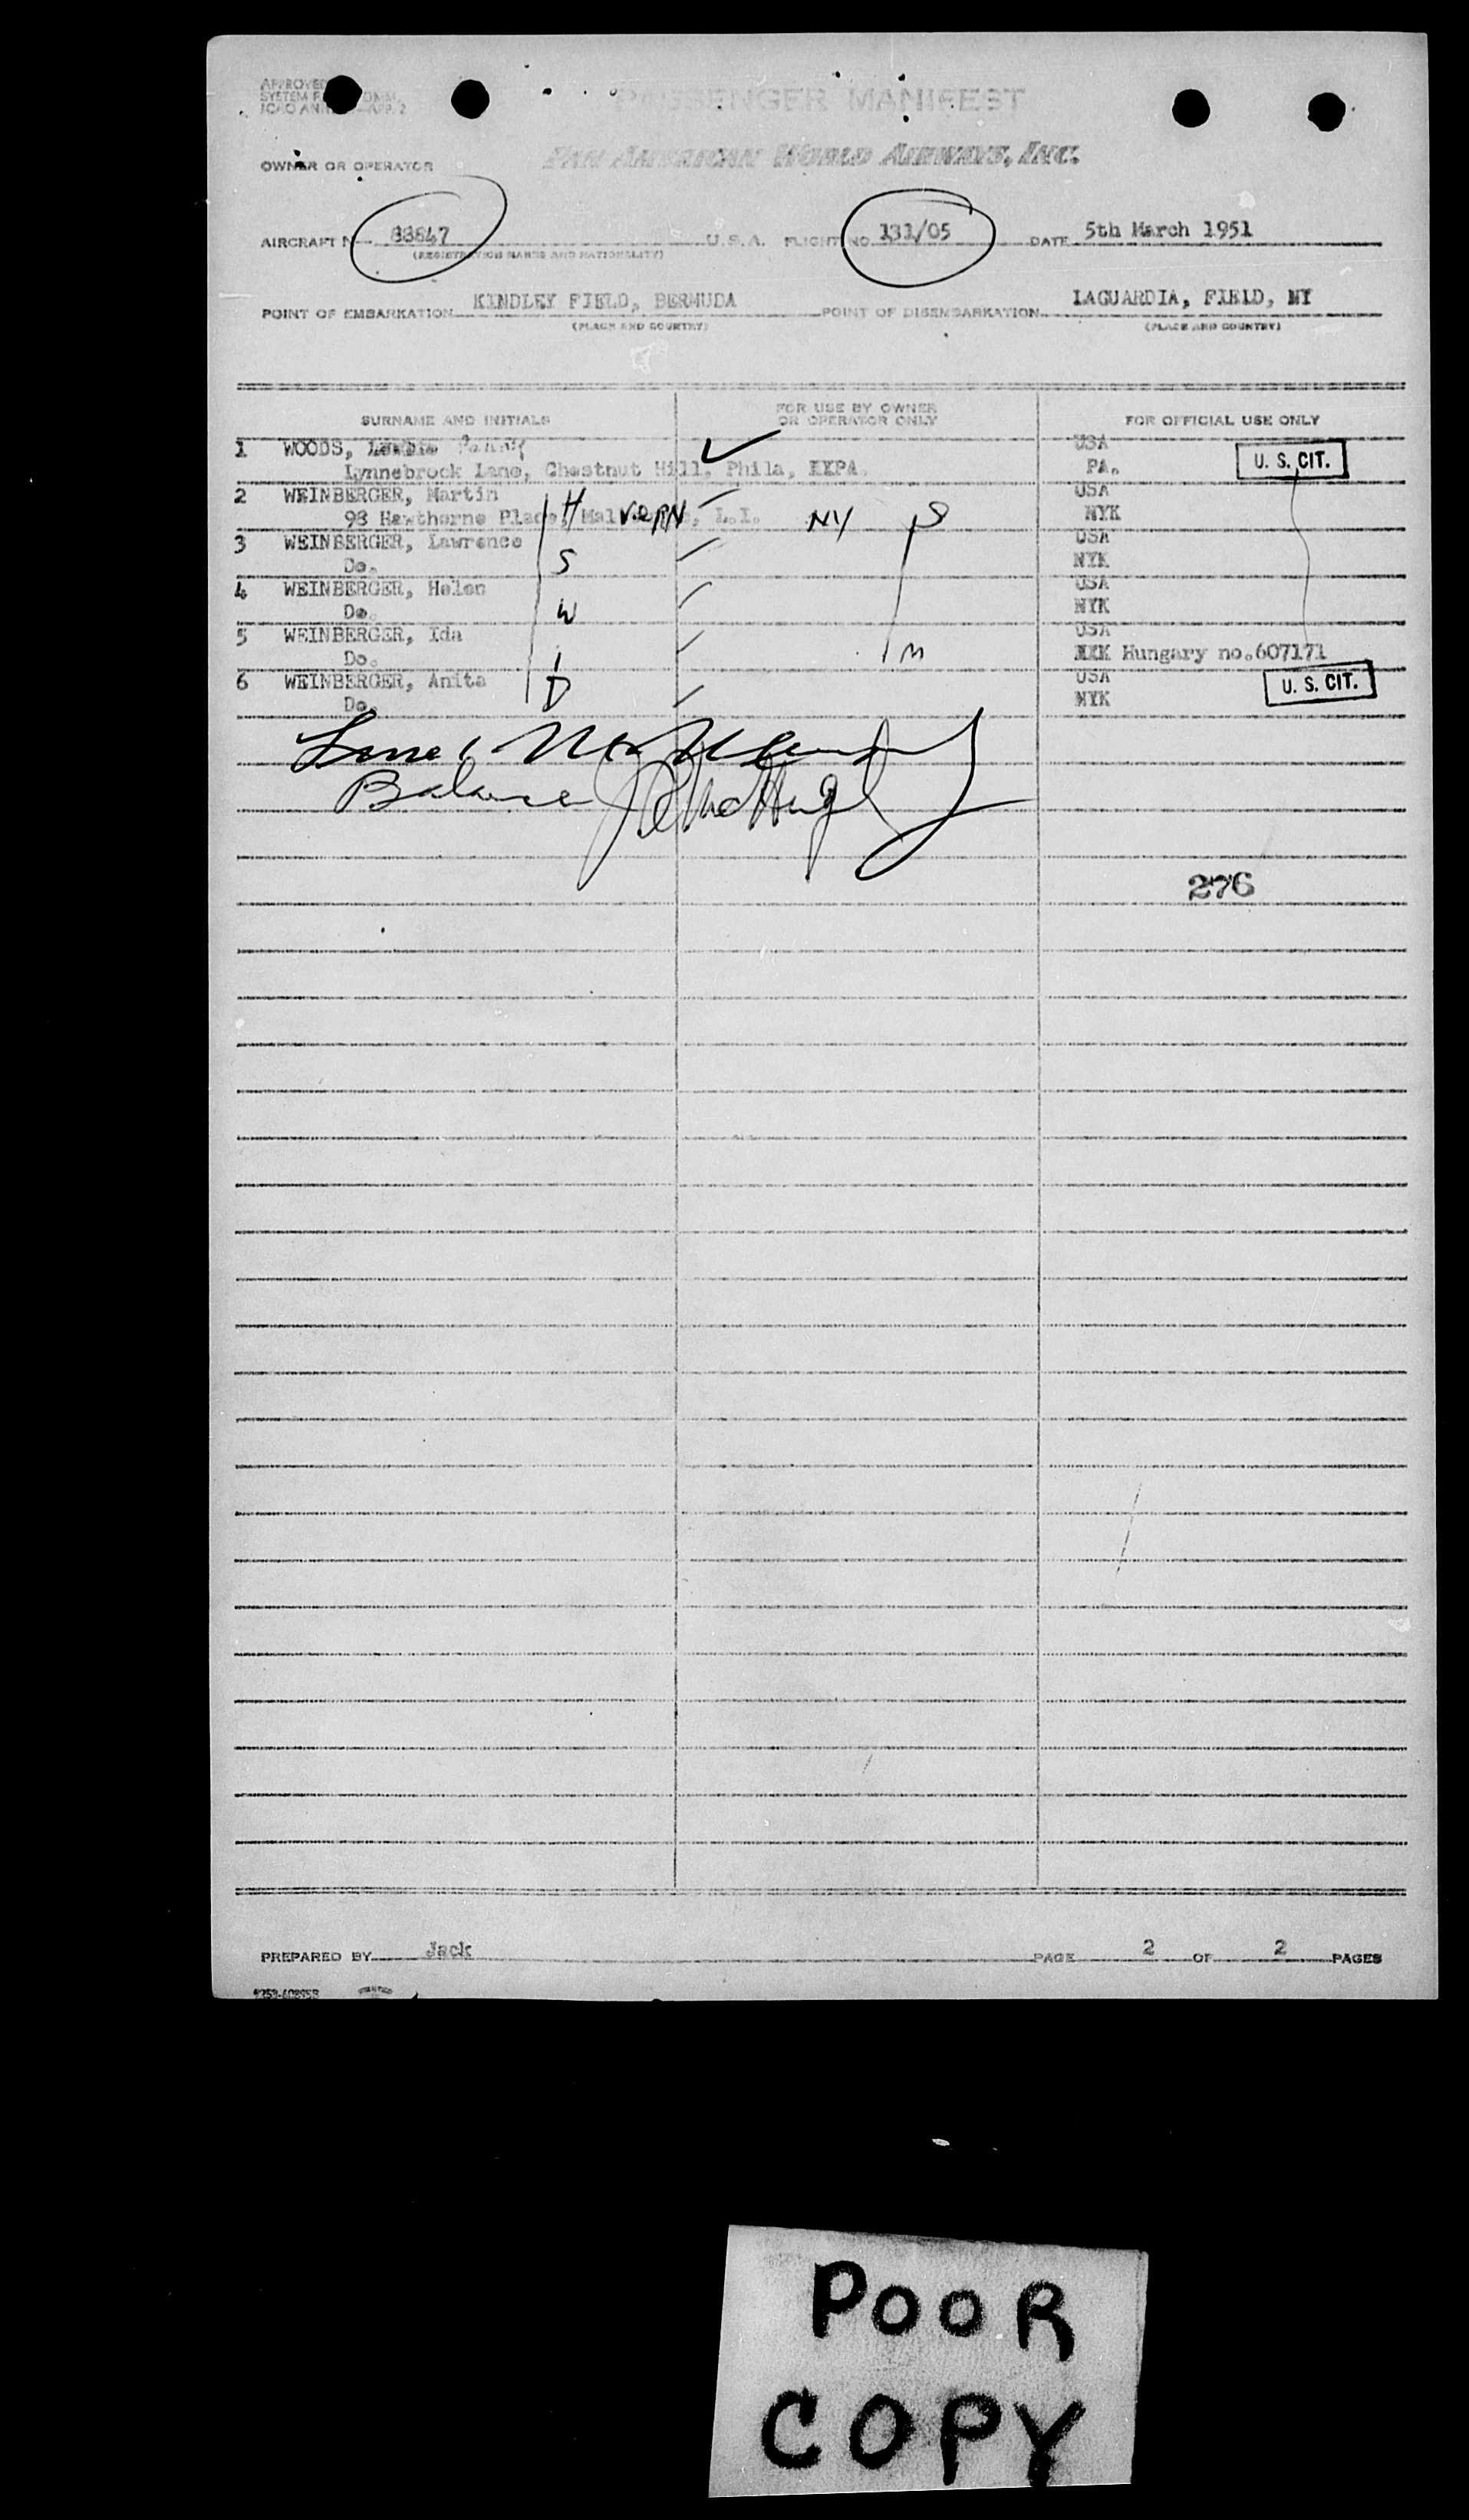 APPROVED
SYSTEM
PASSENGER MANIFEST
PAN AMERICAN WORLD AIRWAYS, INC.
OWNER OR OPERATOR
AIRCRAFT 88847 U.S.A. FLIGHT NO. 131/05 DATE 5th March 1951
(REGISTRATION MARKS AND NATIONALITY)
POINT OF EMBARKATION KINDLEY FIELD, BERMUDA POINT OF DISEMBARKATION LAGUARDIA, FIELD, NY
(PLACE AND COUNTRY) (PLACE AND COUNTRY)
SURNAME AND INITIALS FOR USE BY OWNER OR OPERATOR ONLY FOR OFFICIAL USE ONLY
1 WOODS, USA
Lynnebrook Lane, Chestnut Hill, Phila, XXPA. PA. U. S. CIT.
2 WEINBERGER, Martin H USA
98 Hawthorne Place, Mal VERN, L.I. NY S NYK
3 WEINBERGER, Lawrence USA
Do. S NYK
4 WEINBERGER, Helen USA
Do. W NYK
5 WEINBERGER, Ida USA
Do. M XXX Hungary no.607171
6 WEINBERGER, Anita D USA
Do. NYK U. S. CIT.
Balance
276
PREPARED BY Jack PAGE 2 OF 2 PAGES
POOR
COPY